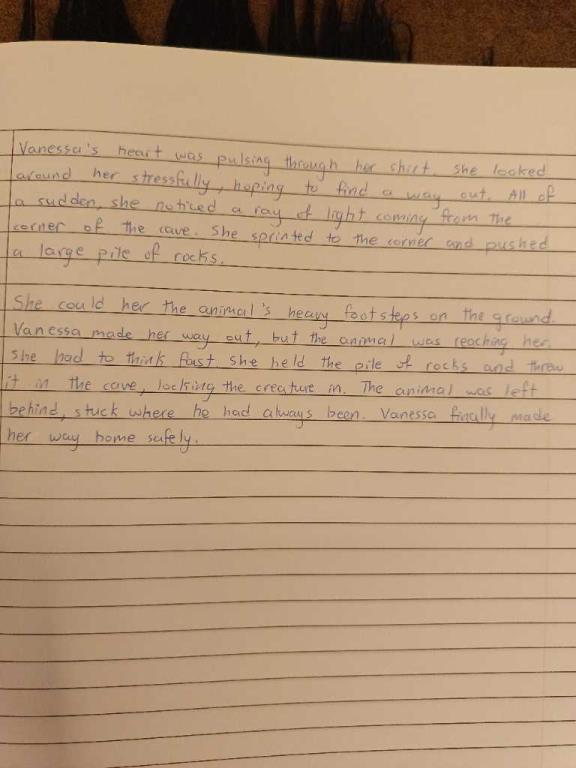 Vanessa's heart was pulsing through her shirt. She looked
around her stressfully, hoping to find a way out. All of
a sudden, she noticed a ray of light coming from the
corner of the cave. She sprinted to the corner and pushed
a large pile of rocks.
She could her the animal's heavy footsteps on the ground.
Vanessa made her way out, but the animal was reaching her.
She had to think fast. She held the pile of rocks and threw
it in the cave, locking the creature in. The animal was left
behind, stuck where he had always been. Vanessa finally made
her way home safely.